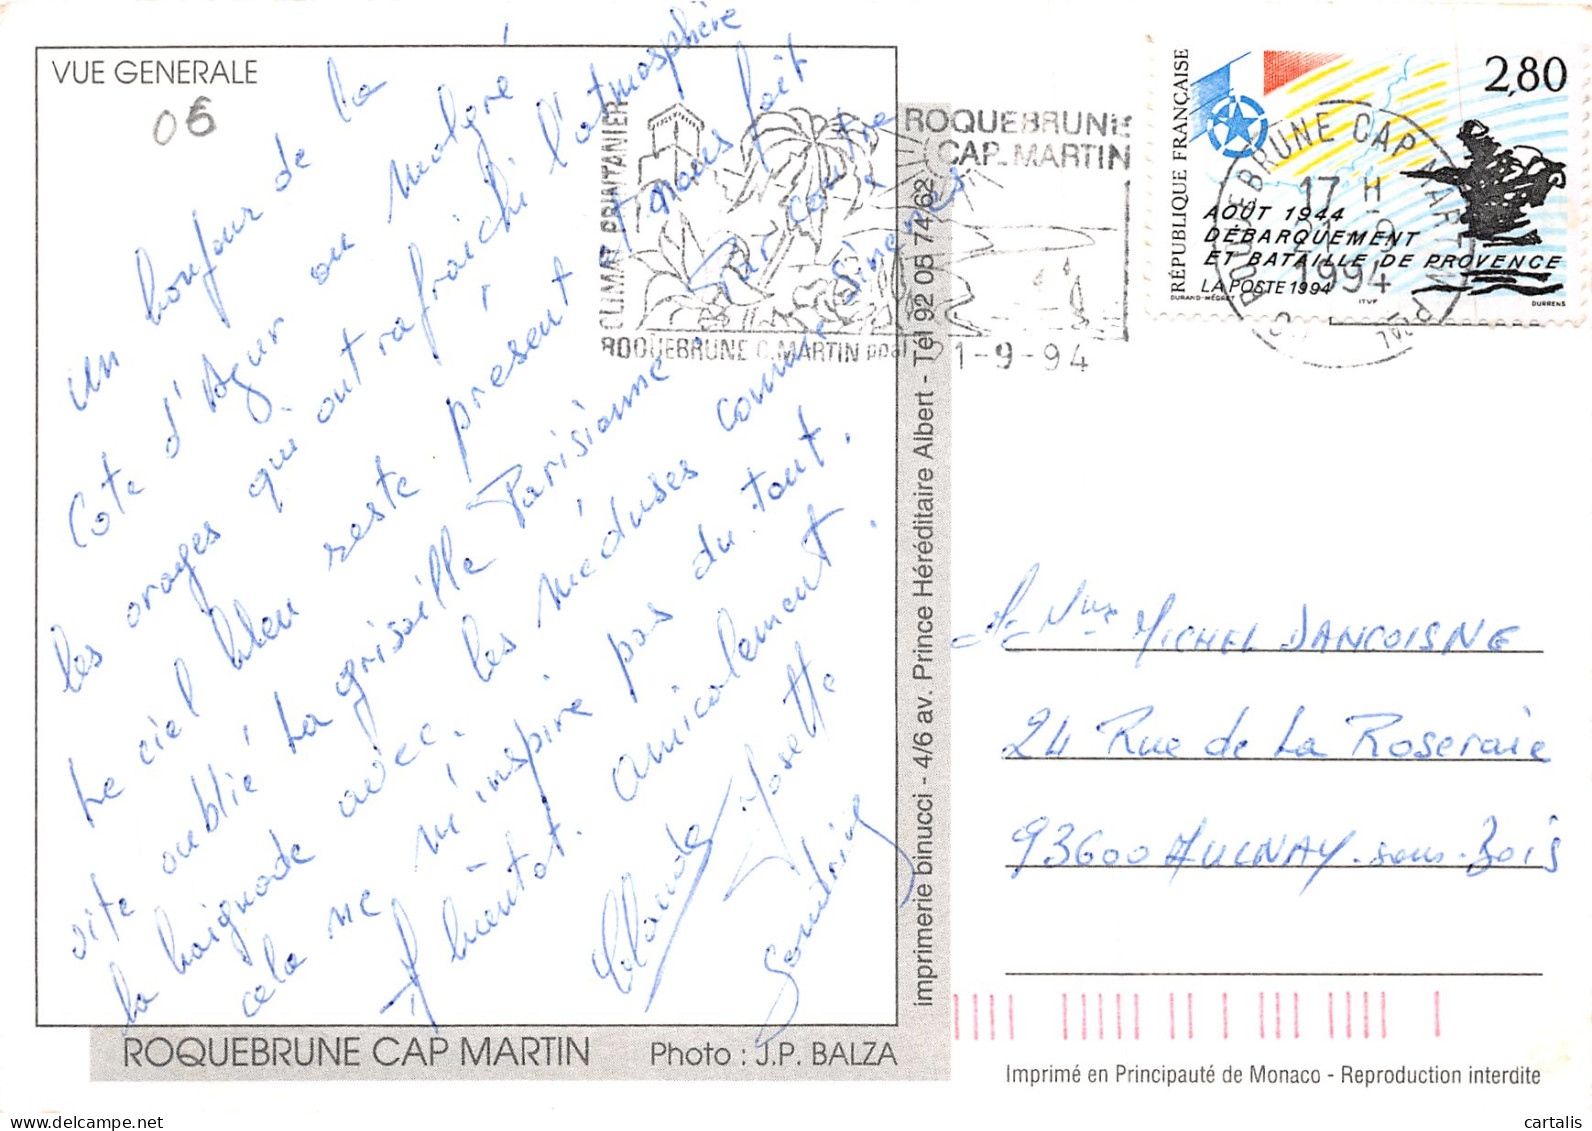 VUE GENERALE
06
Un bonjour de la
Cote d'Azur ou malgré
les orages qui ont rafraichi l'atmosphère
Le ciel bleu reste présent nous fait
vite oublié La grisaille Parisienne. Par contre
la baignade avec les méduses comme
cela ne m'inspire pas du tout.
A bientot. Amicalement.
Claude Josette
Sandrine
ROQUEBRUNE CAP MARTIN
Photo : J.P. BALZA
imprimerie binucci - 4/6 av. Prince Héréditaire Albert - Tél 92 05 74 62
CLIMAT PRINTANIER
ROQUEBRUNE
CAP-MARTIN
ROQUEBRUNE C.MARTIN ppal
1-9-94
RÉPUBLIQUE FRANÇAISE
2,80
AOÛT 1944
DÉBARQUEMENT
ET BATAILLE DE PROVENCE
LA POSTE 1994
DURAND-MÉGRET
ITVF
DURRENS
ROQUEBRUNE CAP MARTIN PPAL
17 H
1994
MICHEL DANCOISNE
24 Rue de La Roseraie
93600 AULNAY-sous-Bois
Imprimé en Principauté de Monaco - Reproduction interdite
cartalis